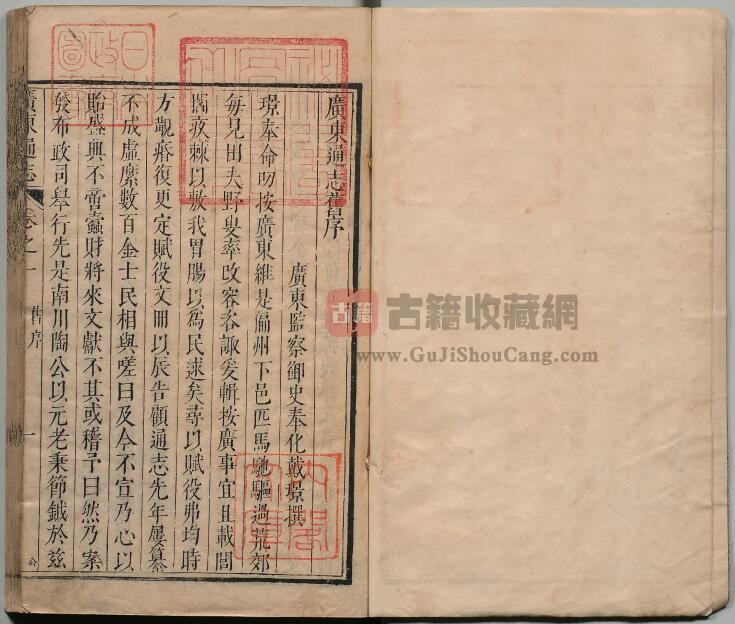 廣東通志舊序
廣東監察御史奉化戴璟撰
璟奉命叨按廣東維是偏州下邑匹馬馳驅過荒郊
每見田夫野叟率改容咨諏爰輯按廣事宜且載閭
閻疾棘以敷我胃腸以為民逑矣尋以賦役弗均時
方觀瘠復更定賦役文冊以辰告顧通志先年屢纂
不成虛縻數百金士民相與嗟曰及今不宣乃心以
貽盛典不啻蠹財將來文獻不其或稽予曰然乃案
發布政司舉行先是南川陶公以元老秉節鉞於茲
廣東通志
卷之一
舊序
一
古籍
古籍收藏網
www.GuJiShouCang.com